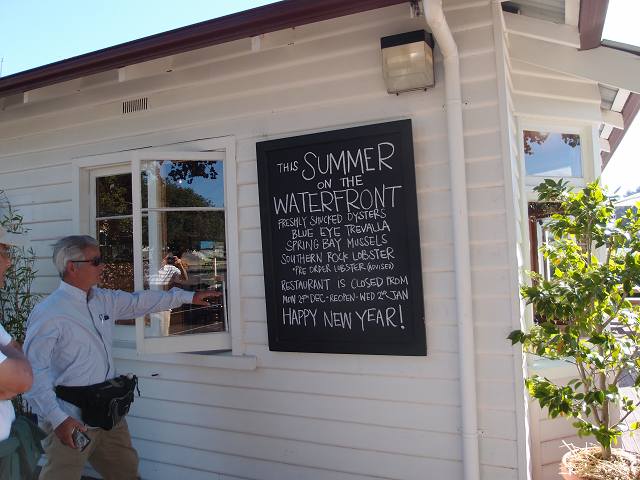 THIS SUMMER
ON THE
WATERFRONT
FRESHLY SHUCKED OYSTERS
BLUE EYE TREVALLA
SPRING BAY MUSSELS
SOUTHERN ROCK LOBSTER
*PRE ORDER LOBSTER (ADVISED)
RESTAURANT IS CLOSED FROM
MON 29TH DEC - REOPEN - WED 2ND JAN
HAPPY NEW YEAR!